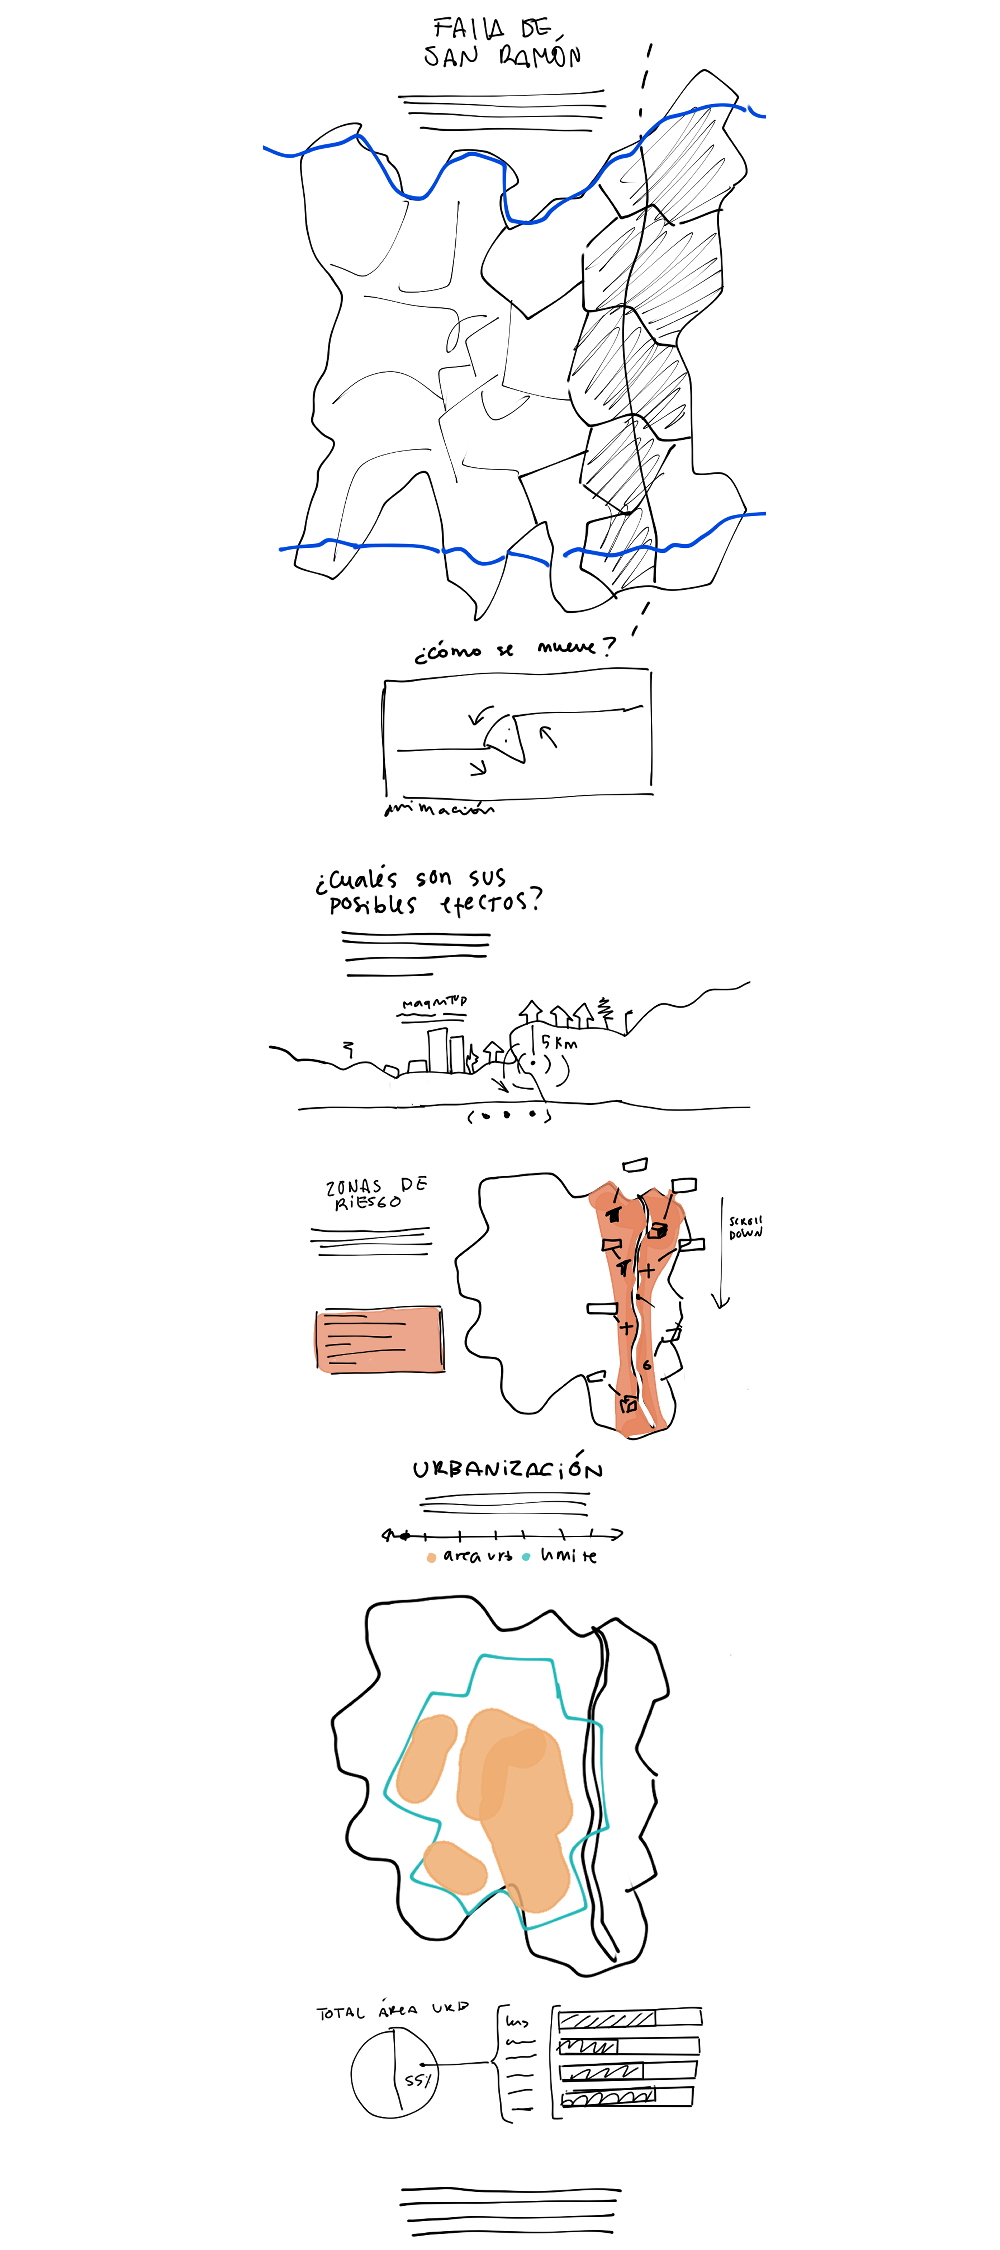 FALLA DE
SAN RAMÓN
¿cómo se mueve?
animación
¿Cualés son sus
posibles efectos?
magnitud
5 km
ZONAS DE
RIESGO
SCROLL
DOWN
6
URBANIZACIÓN
area urb
limite
TOTAL ÁREA URB
55%